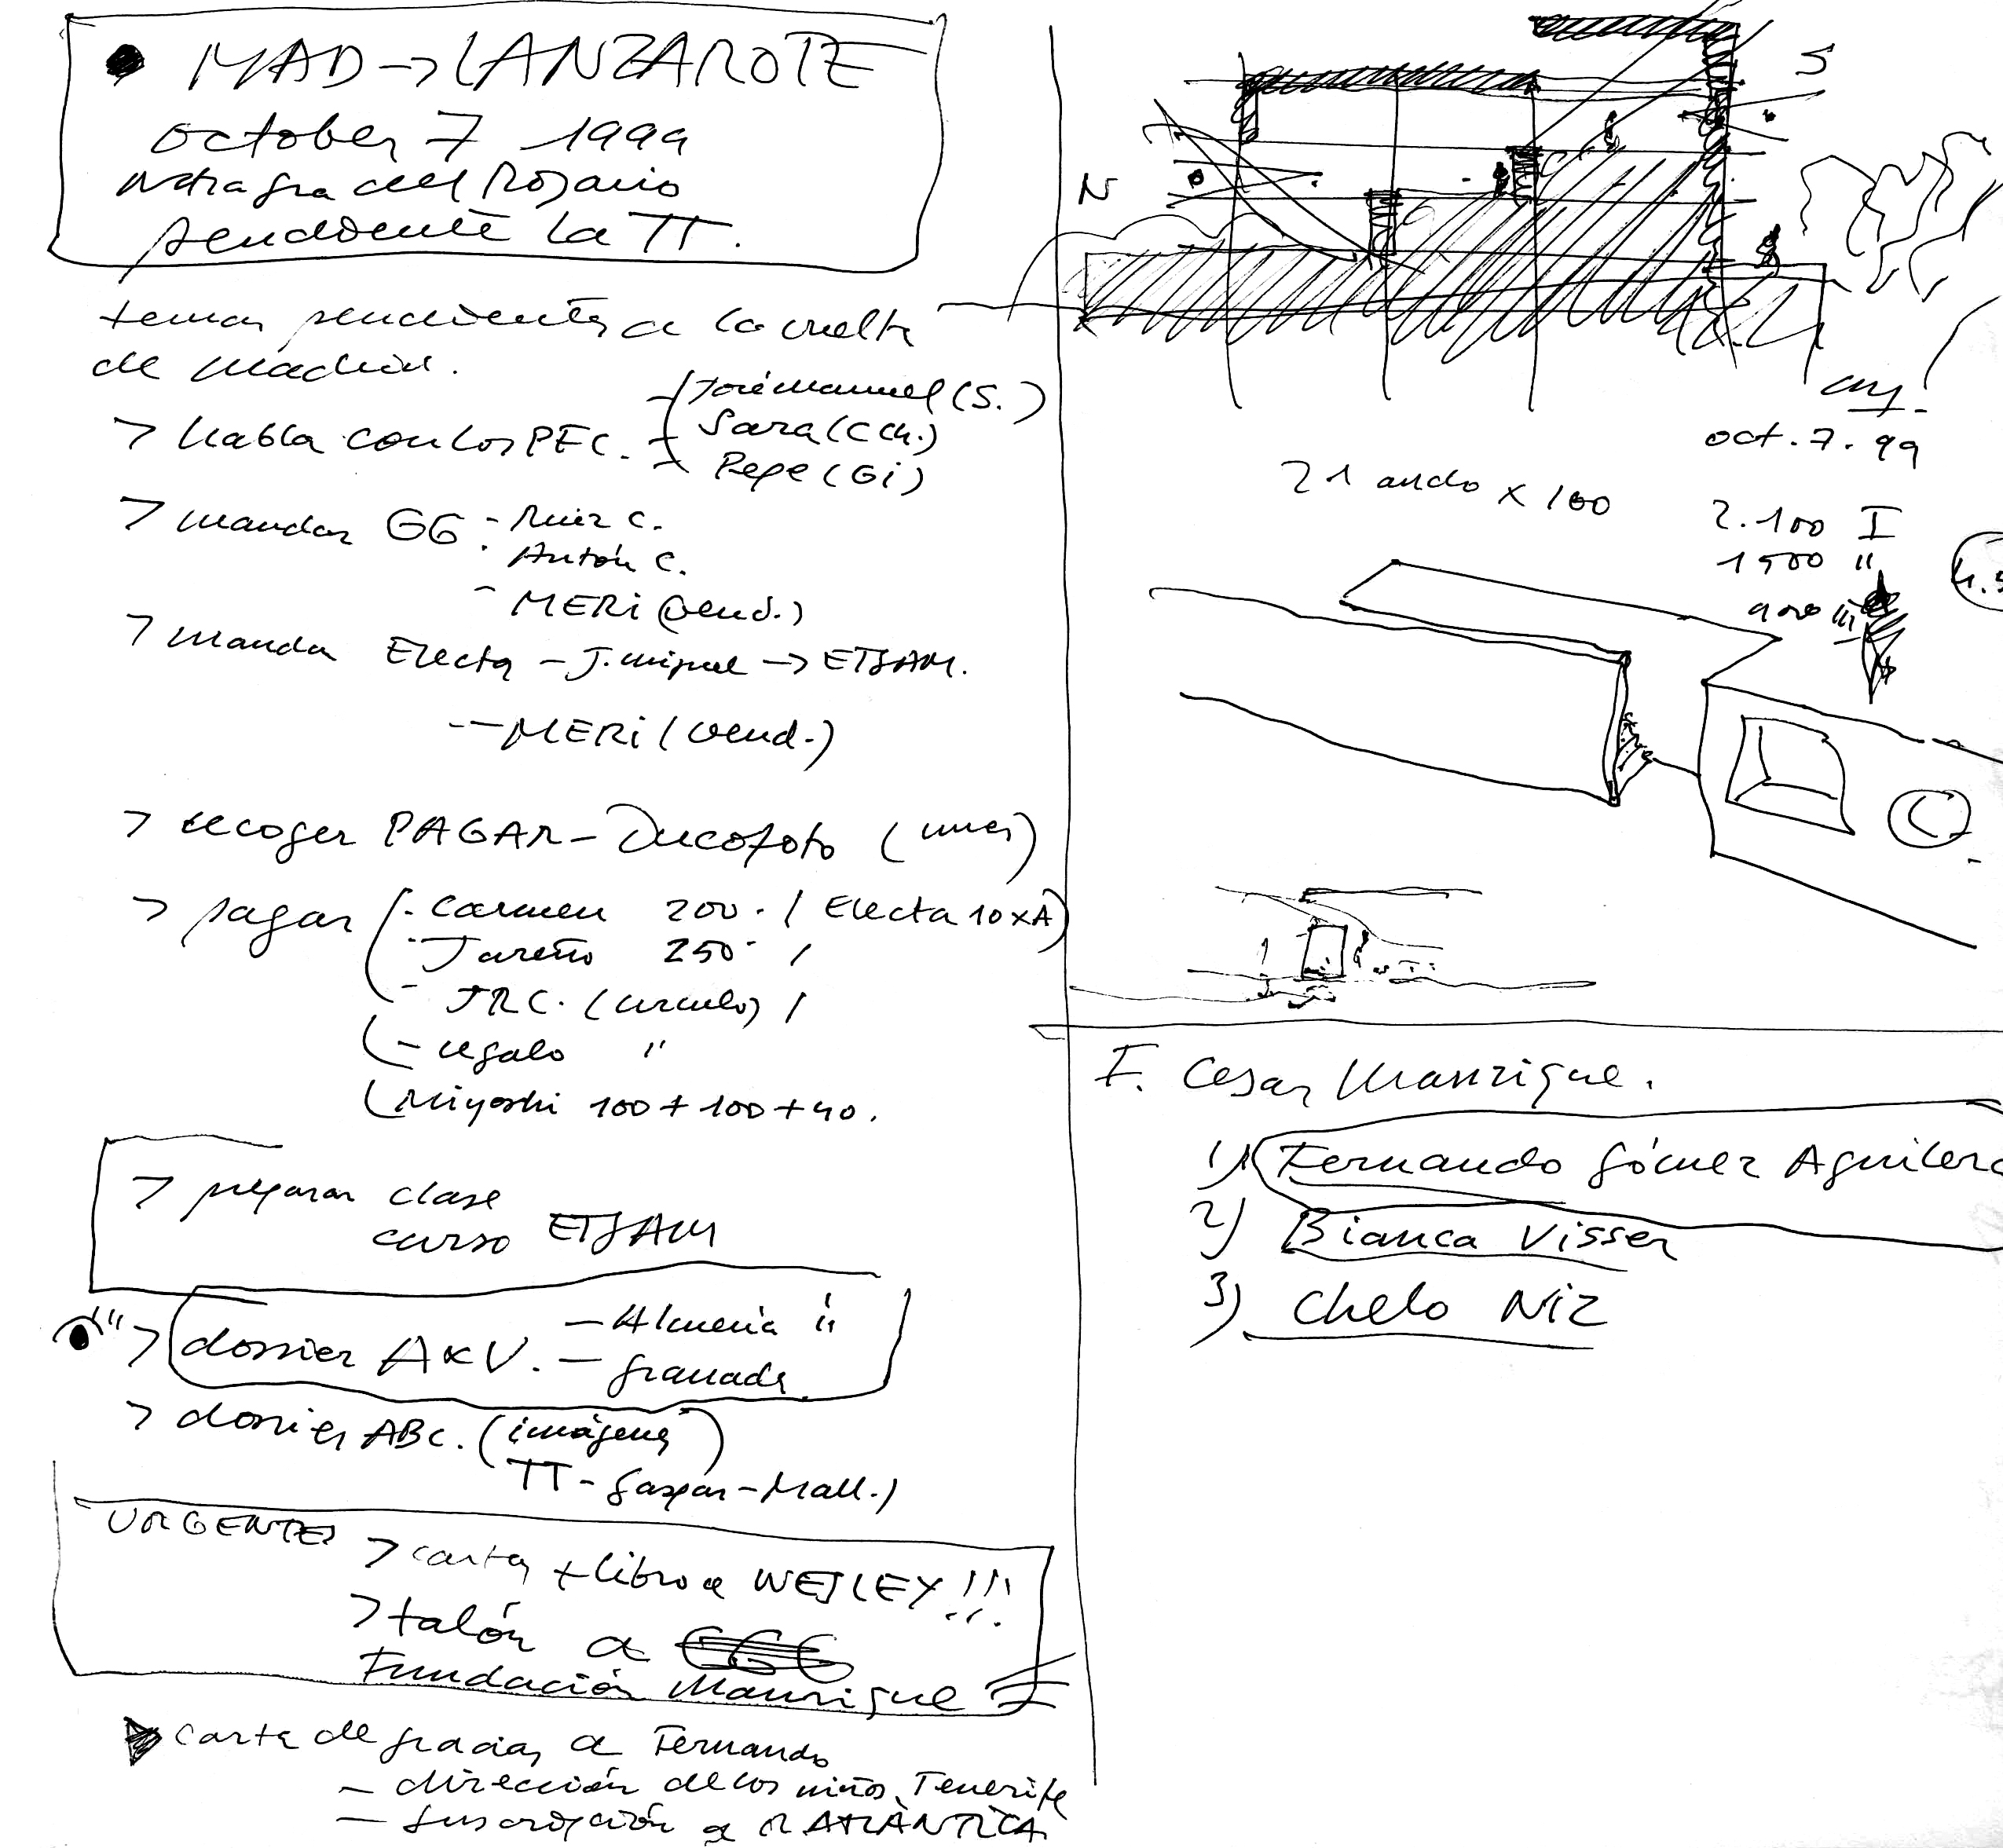 MAD → LANZAROTE
october 7 1999
ntra sra del Rosario
pendiente la TT.
temas pendientes a la vuelta
de Madrid.
> habla con los PFC. - José Manuel (S.)
- Sara (C Ch.)
- Pepe (Gi)
> mandar GG - Ruiz C.
- Antón C.
- MERI (vend.)
> mandar Electa - J. Miguel → ETSAM.
- MERI (vend.)
> recoger PAGAR - Ducofoto
> pagar - Carmen 200. / Electa 10 x A)
- Jareño 250. /
- JRC. (circulo) /
- regalo "
Miyoshi 100 + 100 + 40.
> preparar clase
curso ETSAM
> dossier A&V. - Almeria
- Granada
> dossier ABC. (imágenes)
TT - Gaspar - Mall.)
URGENTES > carta + libro a WESLEY!!!
> talón a
Fundación Manrique
carta de gracias a Fernando
- dirección de los niños Tenerife
- suscripción a R ATLÁNTICA
S
N
oct. 7. 99
21 ando x 100
2.100 I
1500 "
900 III
F. Cesar Manrique.
1) Fernando Gómez Aguilera
2) Bianca Visser
3) Chelo Niz